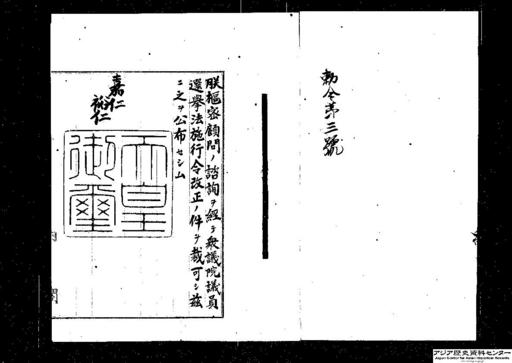 勅令第三號
朕樞密顧問ノ諮詢ヲ經テ衆議院議員
選擧法施行令改正ノ件ヲ裁可シ茲
ニ之ヲ公布セシム
嘉仁
裕仁
天皇
御璽
アジア歴史資料センター
Japan Center for Asian Historical Records